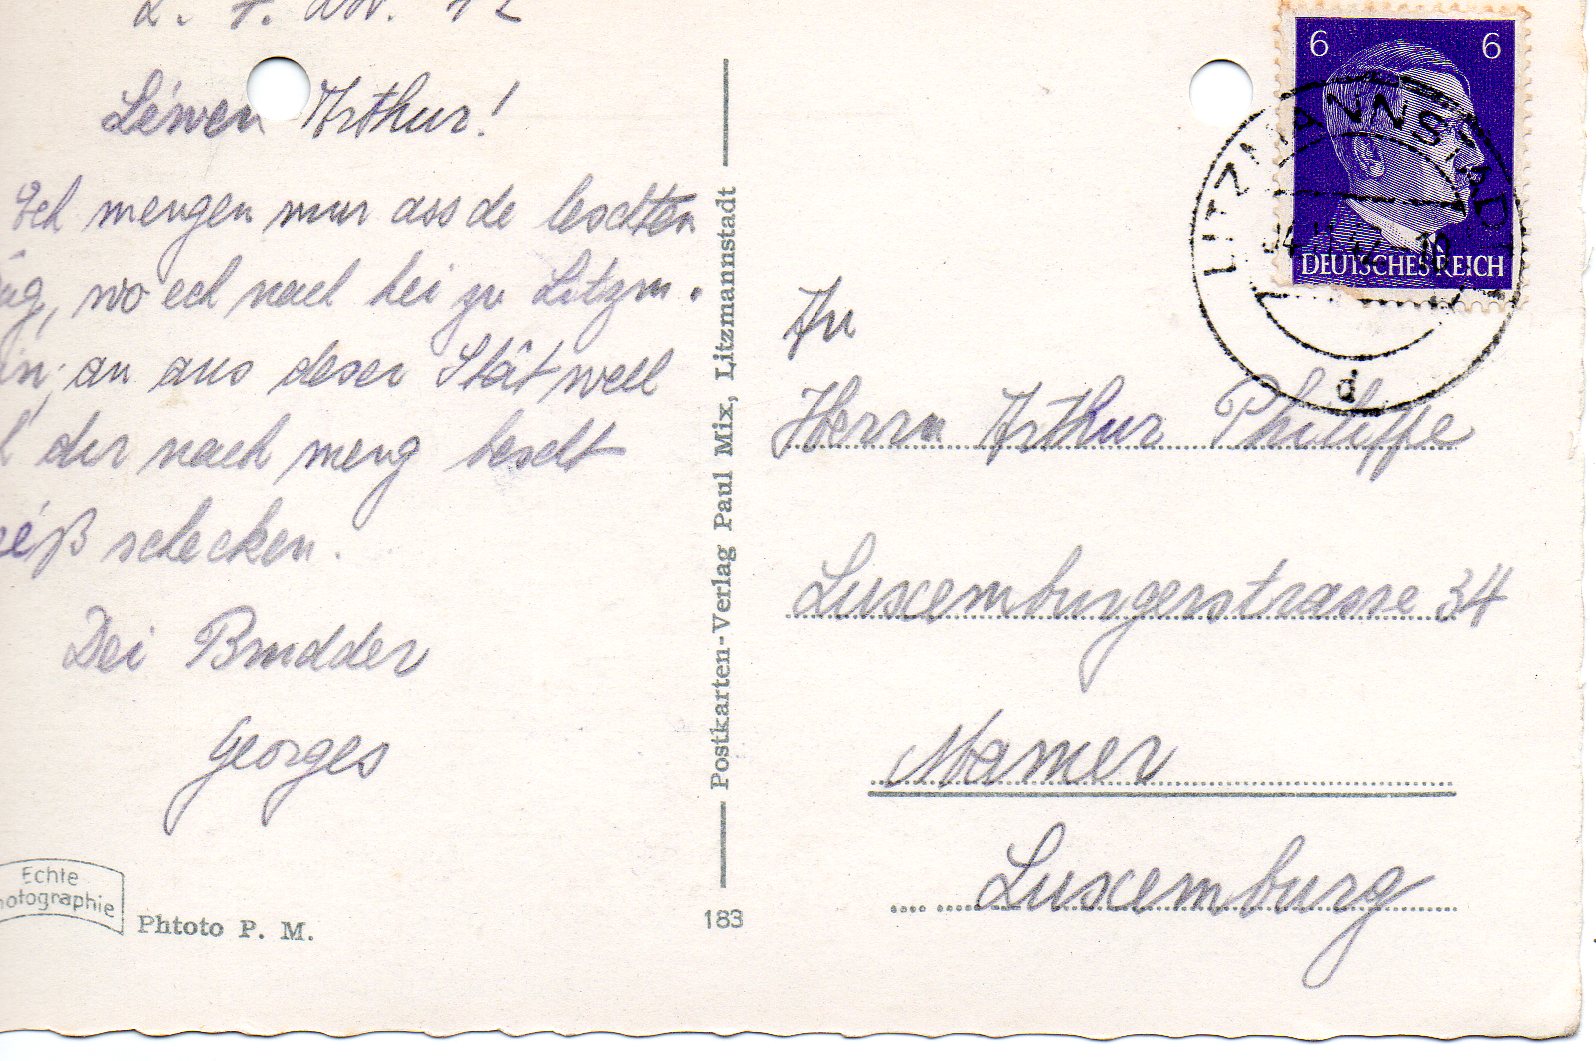 Léwen Arthur!
Ech mengen mur ass de leschten
wo ech nach hei zu Litzm.
an aus deser Stât well
der nach meng bescht
schecken.
Dei Brudder
Georges
Echte
Photo P. M.
Postkarten-Verlag Paul Mix, Litzmannstadt
183
6 6
DEUTSCHES REICH
LITZMANNSTADT
d
An
Herrn Arthur Philippe
Luxemburgerstrasse 34
Mamer
Luxemburg